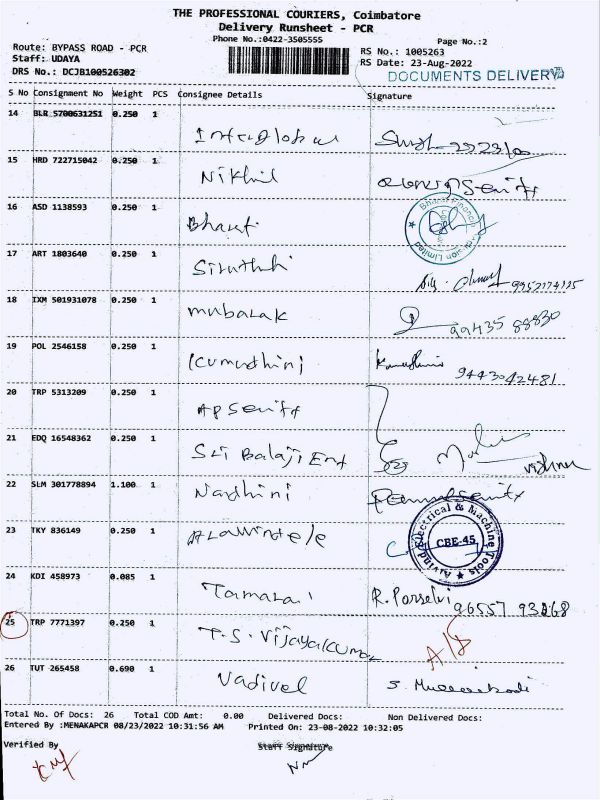 THE PROFESSIONAL COURIERS, Coimbatore
Delivery Runsheet - PCR
Phone No.:0422-3505555
Page No.:2
Route: BYPASS ROAD - PCR
RS No.: 1005263
Staff: UDAYA
RS Date: 23-Aug-2022
DRS No.: DCJB100526302
DOCUMENTS DELIVER
S No Consignment No Weight PCS Consignee Details Signature
14 BLR 5700631251 0.250 1
15 HRD 722715042 0.250 1 Nikhil
16 ASD 1138593 0.250 1 Bharat
17 ART 1803640 0.250 1
18 IXM 501931078 0.250 1 mubarak 99435 88830
19 POL 2546158 0.250 1 Kumudhini 9443042481
20 TRP 5313209 0.250 1
21 EDQ 16548362 0.250 1 Sri Balaji Ent
22 SLM 301778894 1.100 1 Nandhini
23 TKY 836149 0.250 1
Electrical & Machine Tools
CBE-45
24 KDI 458973 0.085 1 Tamarai
25 TRP 7771397 0.250 1 T.S. Vijayakumar
26 TUT 265458 0.690 1 Vadivel
Total No. Of Docs: 26 Total COD Amt: 0.00 Delivered Docs: Non Delivered Docs:
Entered By :MENAKAPCR 08/23/2022 10:31:56 AM Printed On: 23-08-2022 10:32:05
Verified By Staff Signature